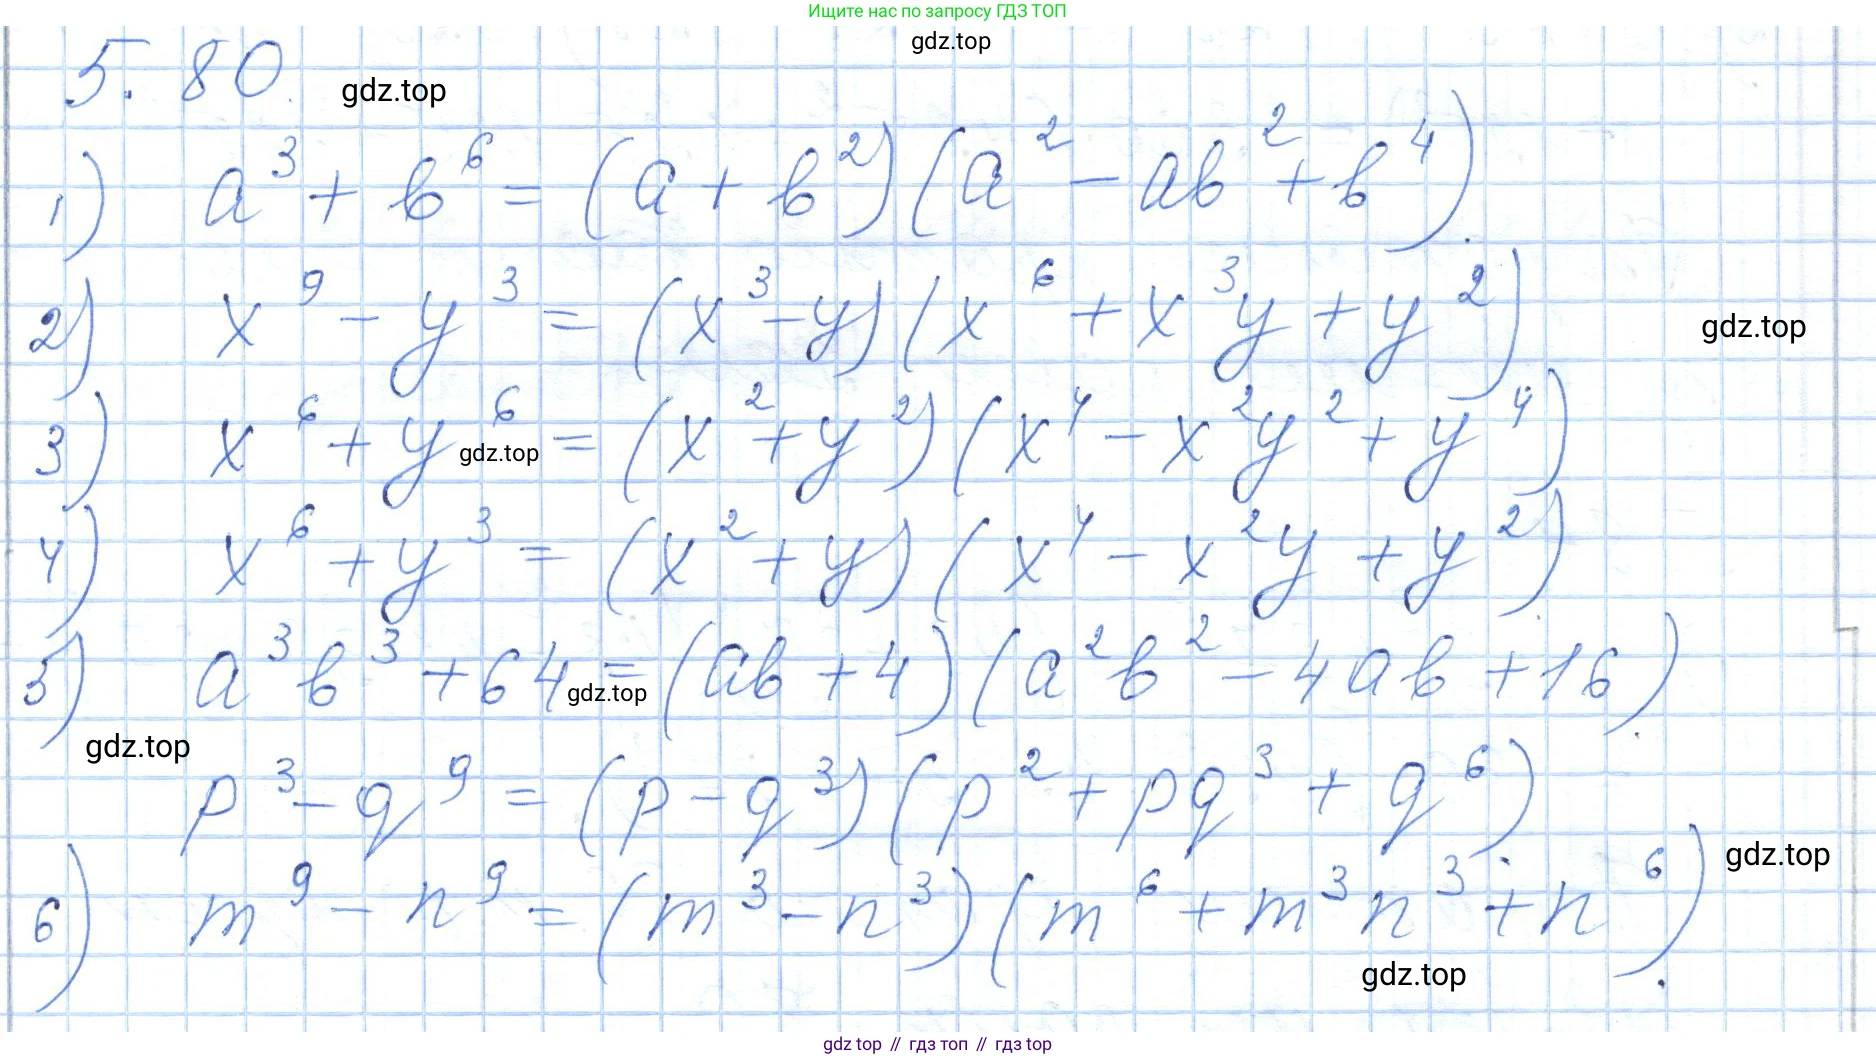 Ищите нас по запросу ГДЗ ТОП
gdz.top
5.80.
gdz.top
1) a³ + b⁶ = (a + b²)(a² − ab² + b⁴).
2) x⁹ − y³ = (x³ − y)(x⁶ + x³y + y²)
gdz.top
3) x⁶ + y⁶ = (x² + y²)(x⁴ − x²y² + y⁴)
gdz.top
4) x⁶ + y³ = (x² + y)(x⁴ − x²y + y²)
5) a³b³ + 64 = (ab + 4)(a²b² − 4ab + 16).
gdz.top
gdz.top
p³ − q⁹ = (p − q³)(p² + pq³ + q⁶).
gdz.top
6) m⁹ − n⁹ = (m³ − n³)(m⁶ + m³n³ + n⁶).
gdz.top
gdz top // гдз топ // gdz top